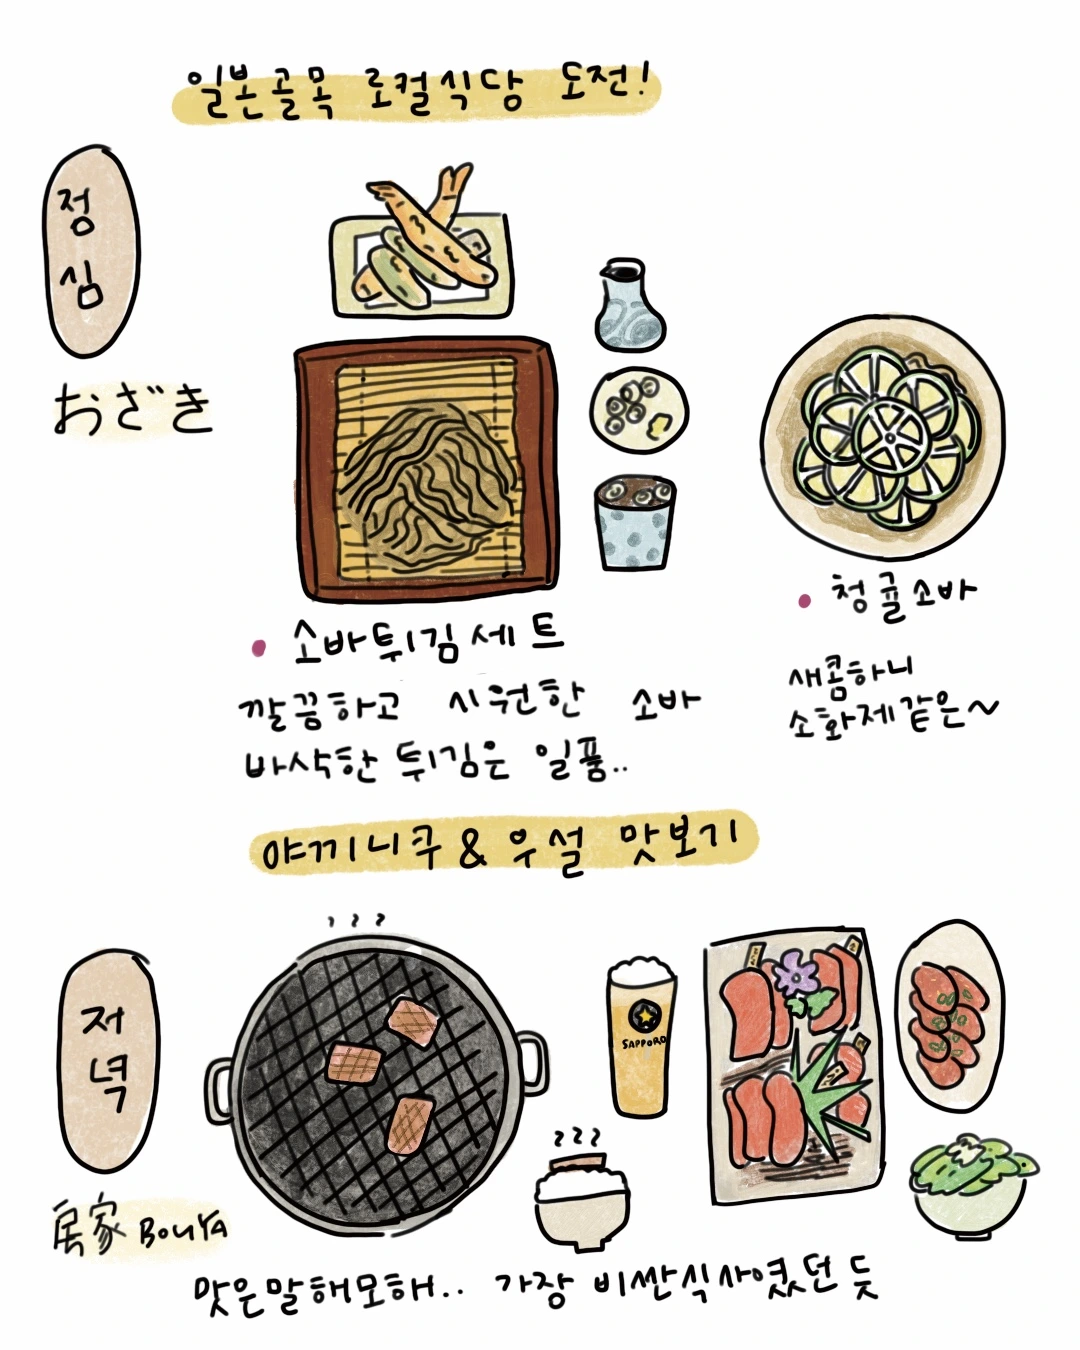 일본골목 로컬식당 도전!
점심
おざき
• 소바튀김세트
깔끔하고 시원한 소바
바삭한 튀김은 일품..
• 청귤소바
새콤하니
소화제같은~
야끼니쿠 & 우설 맛보기
저녁
SAPPORO
房家 BOUYA
맛은말해모해.. 가장 비싼식사였던듯